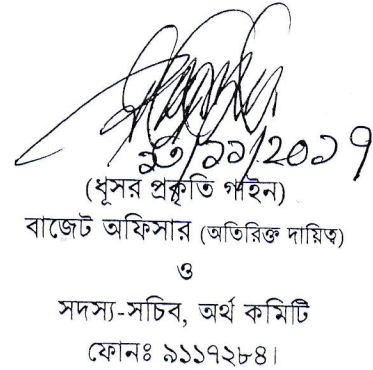 ২৩/১১/২০১৭
(ধূসর প্রকৃতি গাইন)
বাজেট অফিসার (অতিরিক্ত দায়িত্ব)
ও
সদস্য-সচিব, অর্থ কমিটি
ফোনঃ ৯১১৭২৮৪।